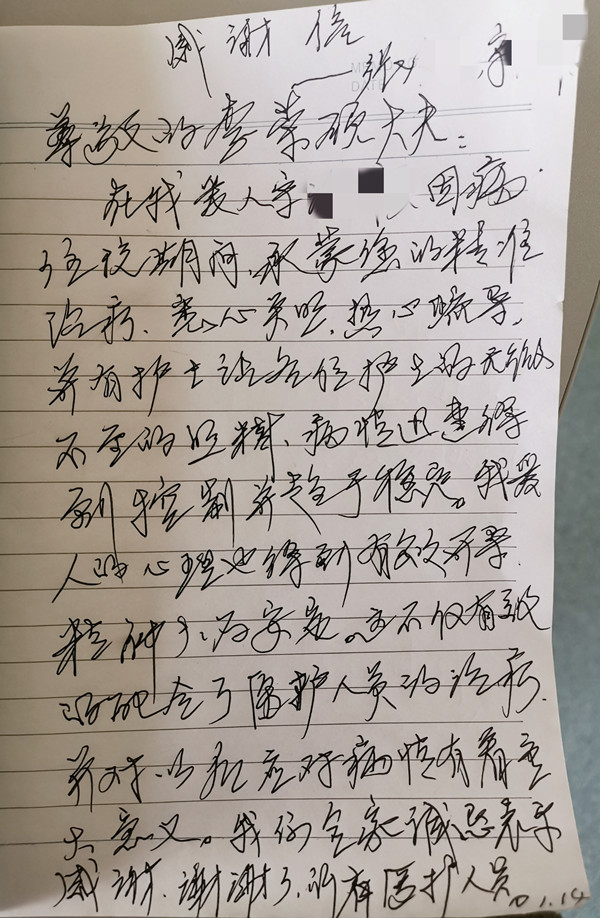 感谢信
——张 京
尊敬的李荣硕大夫：
在我爱人李 因病
住院期间，承蒙您的精准
治疗、悉心关照，热心疏导，
并有护士 各位护士的无微
不至的照料，病情迅速得
到控制并趋于稳定。我爱
人的心理也得到有效开导，
精神 为安定。 不仅有效
的配合了医护人员的治疗，
并对以后应对病情有着重
大意义。我们全家诚恳表示
感谢，谢谢了，所有医护人员
1.14